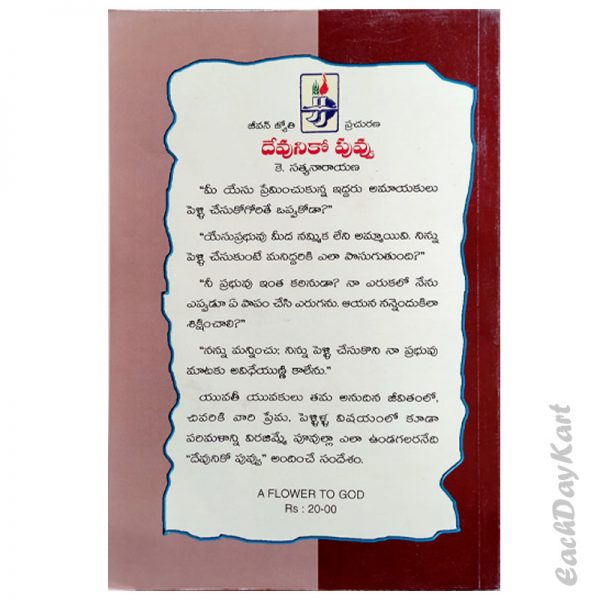 జీవన్ జ్యోతి ప్రచురణ
దేవునికో పువ్వు
కె. సత్యనారాయణ
“మీ యేసు ప్రేమించుకున్న ఇద్దరు అమాయకులు
పెళ్ళి చేసుకోగోరితే ఒప్పుకోడా?”
“యేసుప్రభువు మీద నమ్మిక లేని అమ్మాయివి. నిన్ను
పెళ్ళి చేసుకుంటే మనిద్దరికి ఎలా పొసుగుతుంది?”
“నీ ప్రభువు ఇంత కఠినుడా? నా ఎరుకలో నేను
ఎప్పుడూ ఏ పాపం చేసి ఎరుగను. ఆయన నన్నెందుకిలా
శిక్షించాలి?”
“నన్ను మన్నించు; నిన్ను పెళ్ళి చేసుకొని నా ప్రభువు
మాటకు అవిధేయుణ్ణి కాలేను.”
యువతీ యువకులు తమ అనుదిన జీవితంలో,
చివరికి వారి ప్రేమ, పెళ్ళిళ్ళ విషయంలో కూడా
పరిమళాన్ని విరజిమ్మే పూవుల్లా ఎలా ఉండగలరనేది
“దేవునికో పువ్వు” అందించే సందేశం.
A FLOWER TO GOD
Rs : 20-00
EachDayKart